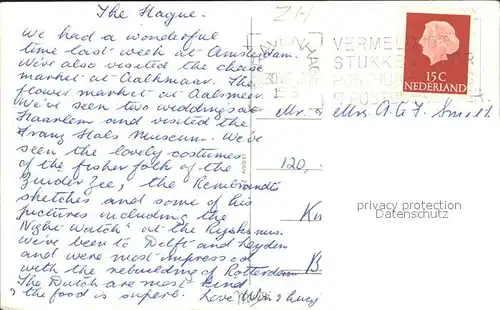 The Hague.
We had a wonderful
time last week at Amsterdam.
We've also visited the cheese
market at Aalkmaar. The
flower market at Aalsmeer.
We've seen two weddings at
Haarlem and visited the
Franz Hals Museum. We've
seen the lovely costumes
of the fisher folk of the
Zuider Zee, the Rembrandts
sketches and some of his
pictures including the
"Night Watch" at the Ryksmus.
We've been to Delft and Leyden
and were most impressed
with the rebuilding of Rotterdam
The Dutch are most kind
& the food is superb. Love & Lucy
ZH
DEN HAAG
VERMELD
STUKKEN
15C
NEDERLAND
Mr. & Mrs. A & F. Smith
120,
Kn
B
permission
Datenschutz